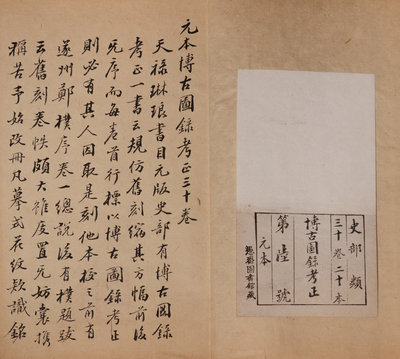 史部類
三十卷二十本
博古圖錄考正
第陸號
元本
圖書館藏
元本博古圖錄考正三十卷
天祿琳琅書目元版史部有博古圖錄
考正一書云規仿舊刻縮其方幅前後
无序而每卷首行標以博古圖錄考正
則必有其人因取是刻他本校之前有
遂州鄭樸序卷一總說後有樸題跋
云舊刻卷帙頗大雖庋置无妨囊攜
稱苦予始改冊凡摹式花紋款識銘